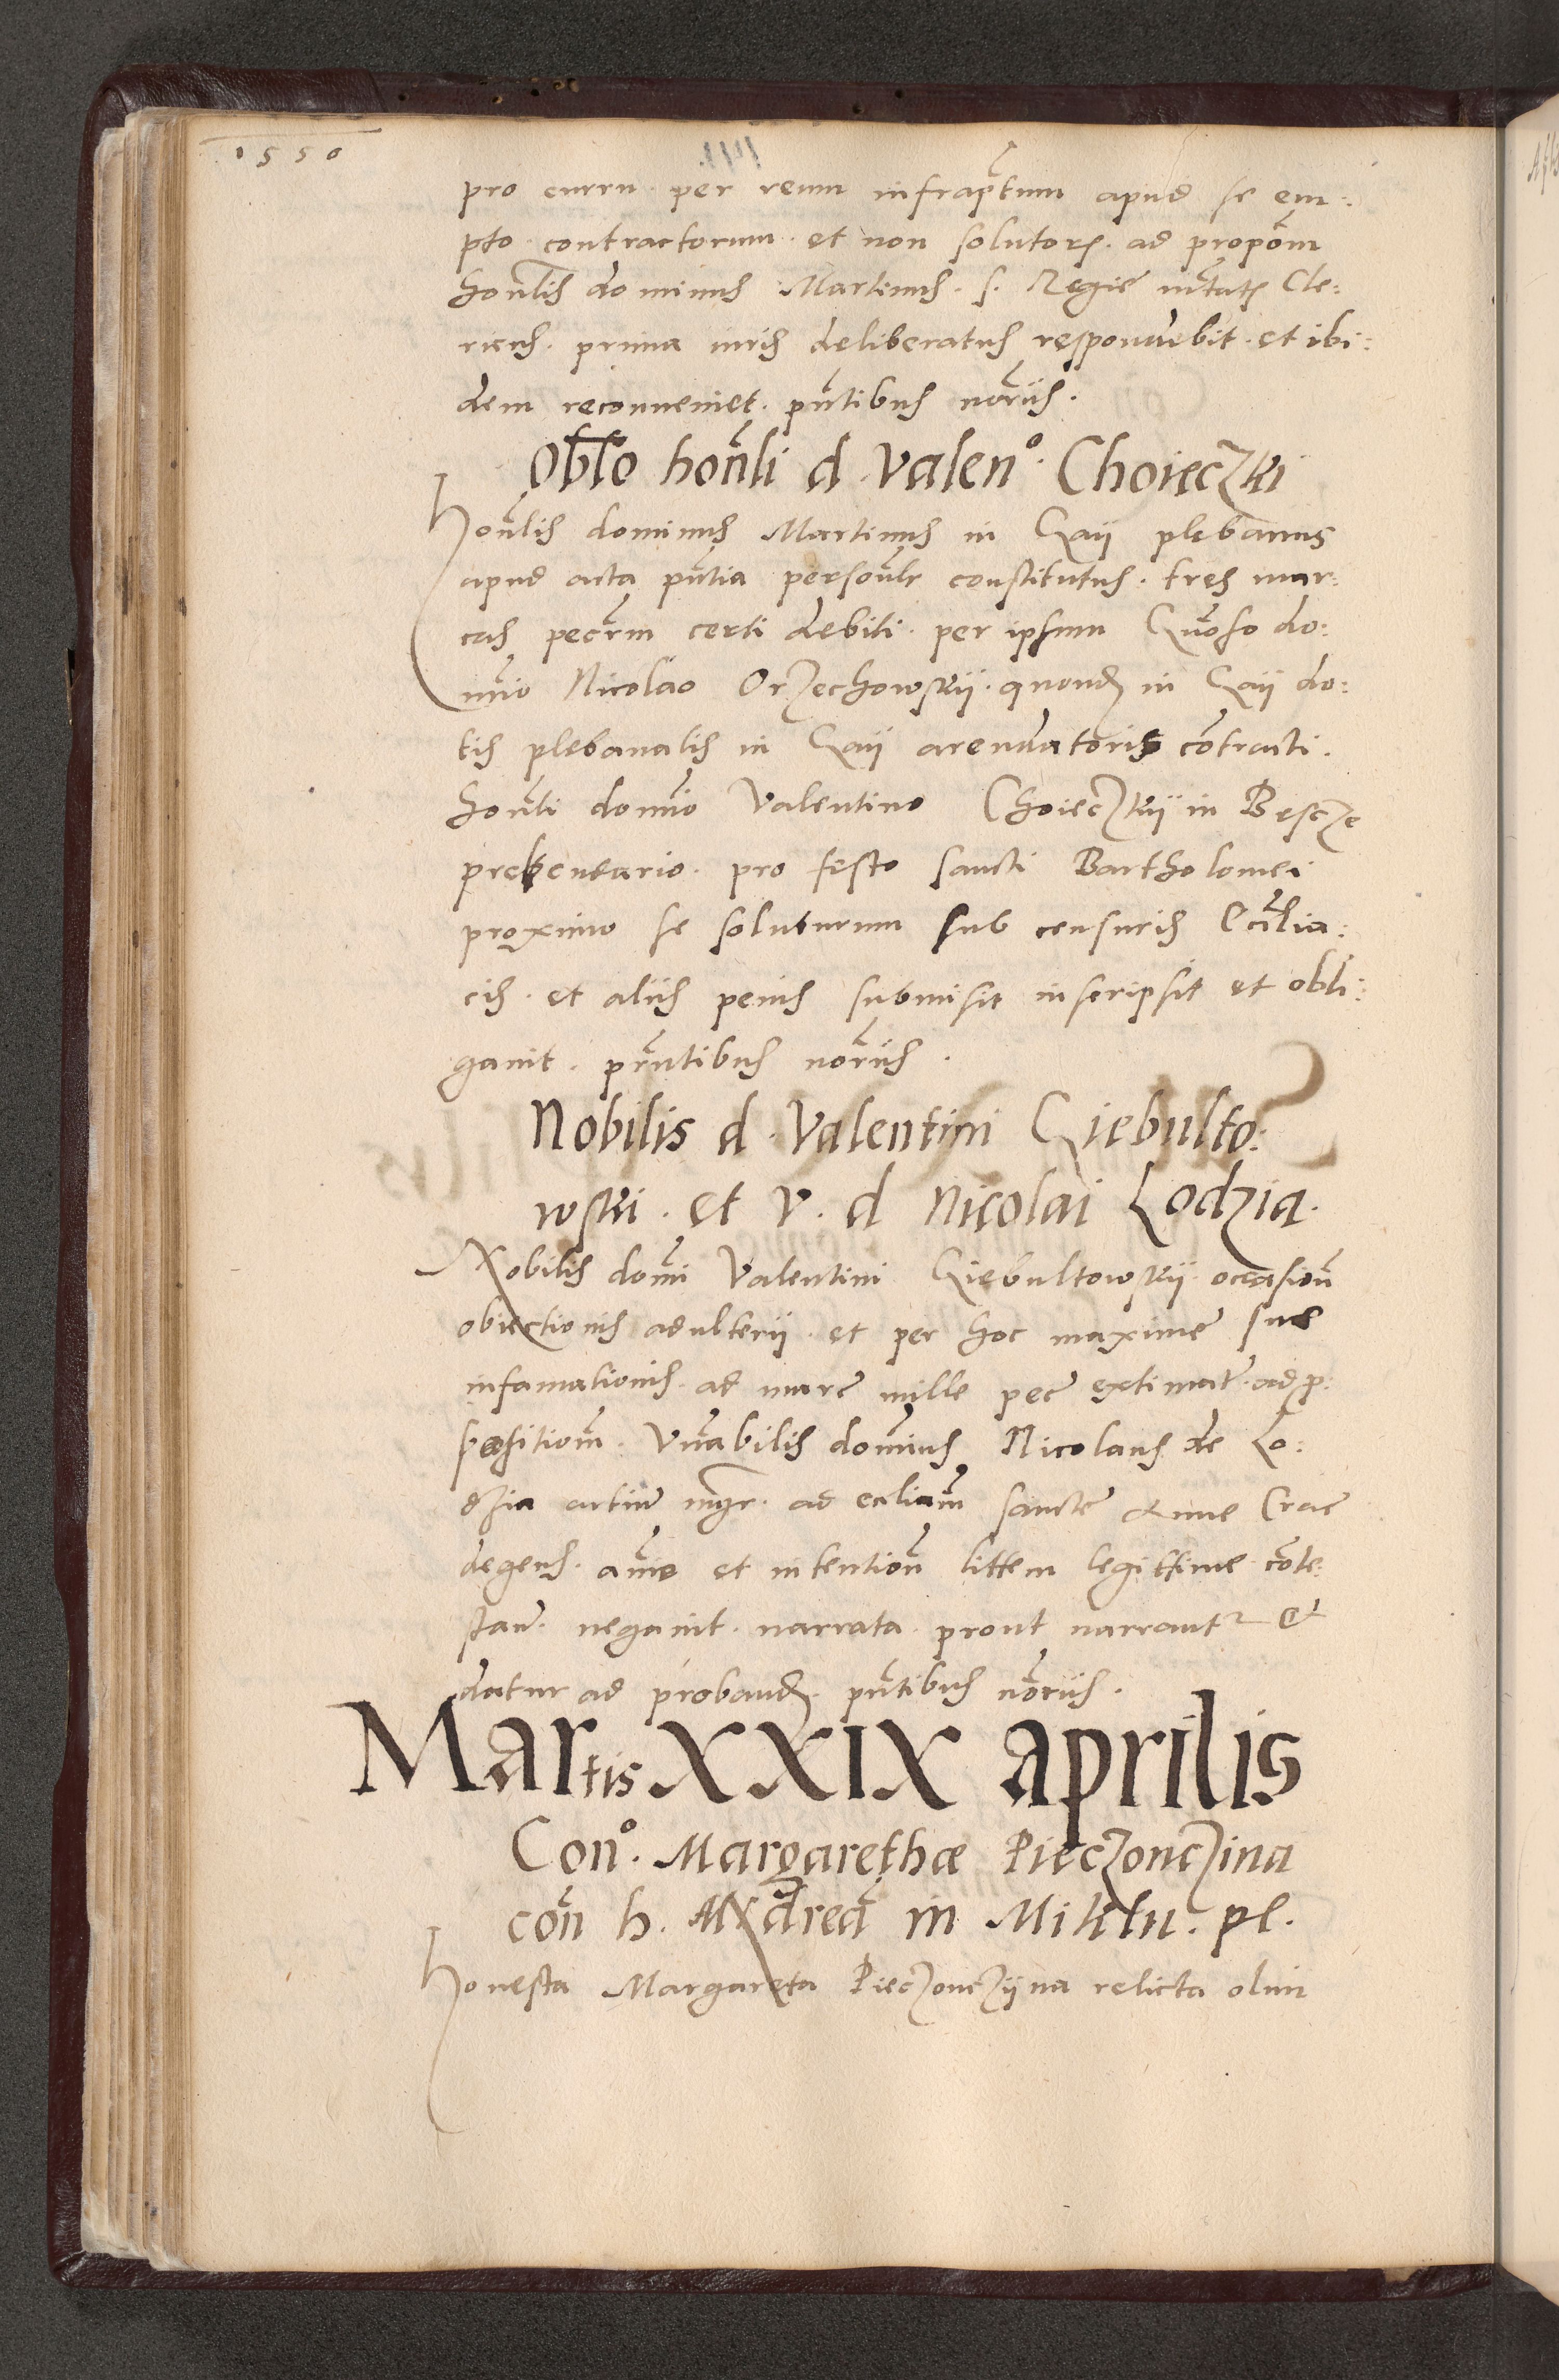 1550
pro curru per reum infrap̃tum apud se em:
pto contractorum et non solutor. ad propõm
honlis̃ dominus Martinus S. Regie mtatis Cle:
ricus prima iuris deliberatus respondebit et ibi:
dem reconueniet. pñtibus noriis̃.
Oblõ honli d Valenº. Choieczki
Honlis̃ dominus Martinus in Gaij plebanus
apud acta pñtia personlr̃ constitutus. tres mar:
cas pecr̃m certi debiti per ipsum Gñoso do:
mio Nicolao Orzechowskij quond in Gaij do:
tis plebanalis in Gaij arendatoris cõtracti.
honli domio Valentino Choieczkij in Bescze
prebendario. pro festo sancti Bartholomei
proximo se soluturum sub censuris Eccl̃ia:
cis. et aliis penis submisit inscripsit et obli:
gauit. prñtibus noriis̃.
Nobilis d. Valentini Giebulto:
wski. et V. d Nicolai Lodzia.
Nobilis domi Valentini Giebultowskij occasioñ
obiectionis adulterii et per hoc maxime sue
infamationis ad marc̃ mille pec̃ extimat̃. ad p:
positiom̃. Vñabilis domius Nicolaus de Lo:
dzia artiũ mgr̃. ad eccliam̃ sancte Anne Crac̃
degens. añio et intentioñ littem legittime cõte:
stañ. negauit. narrata prout narrantr &
datur ad proband. pñtibus noriis̃.
Martis XXIX aprilis
Conº. Margarethæ Pieczonczina
coñ h. Andream̃ in Miklu. pl.
Honesta Margareta Pieczonczijna relicta olim